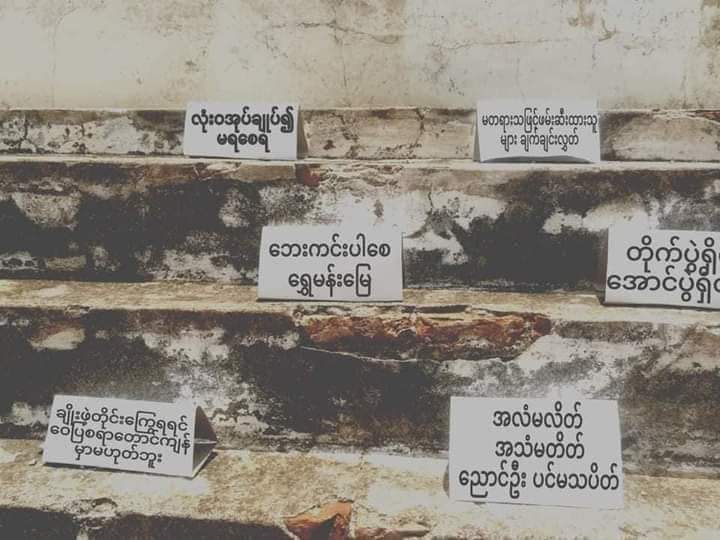 လုံးဝအုပ်ချုပ်၍
မရစေရ
မတရားသဖြင့်ဖမ်းဆီးထားသူ
များ ချက်ချင်းလွှတ်
ဘေးကင်းပါစေ
ရွှေမန်းမြေ
တိုက်ပွဲရှိ
အောင်ပွဲရှိ
ချိုးဖဲ့တိုင်းကြွေရရင်
ဝေဖြိုစရာတောင်ကျန်
မှာမဟုတ်ဘူး
အလံမလိတ်
အသံမတိတ်
ညောင်ဦး ပင်မသပိတ်